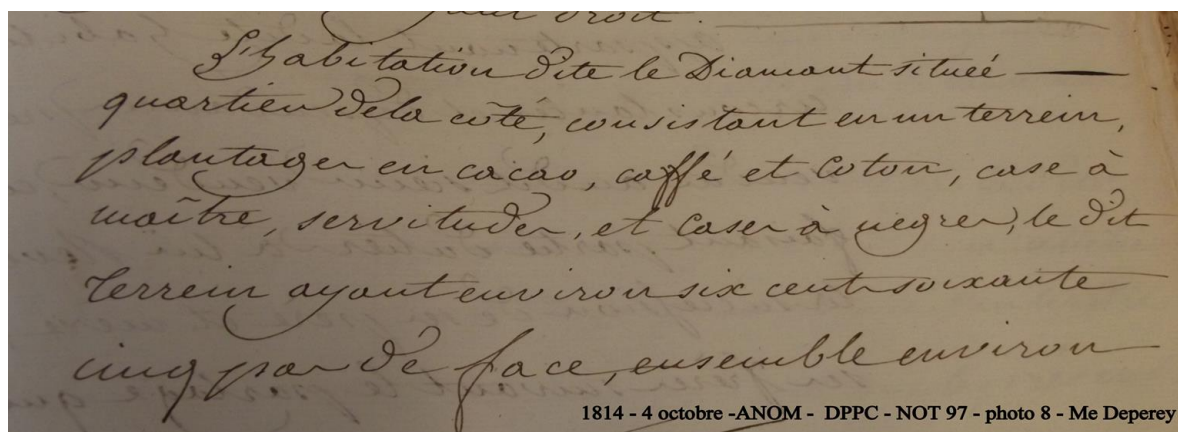 L'habitation dite le Diamant situeé
quartier dela coté, consistant en un terrein,
plantages en cacao, caffé et coton, case à
maître, servitudes, et cases à negres, le dit
terrein ayant environ six cent soixante
cinq pas dé face, ensemble environ
1814 - 4 octobre -ANOM - DPPC - NOT 97 - photo 8 - Me Deperey